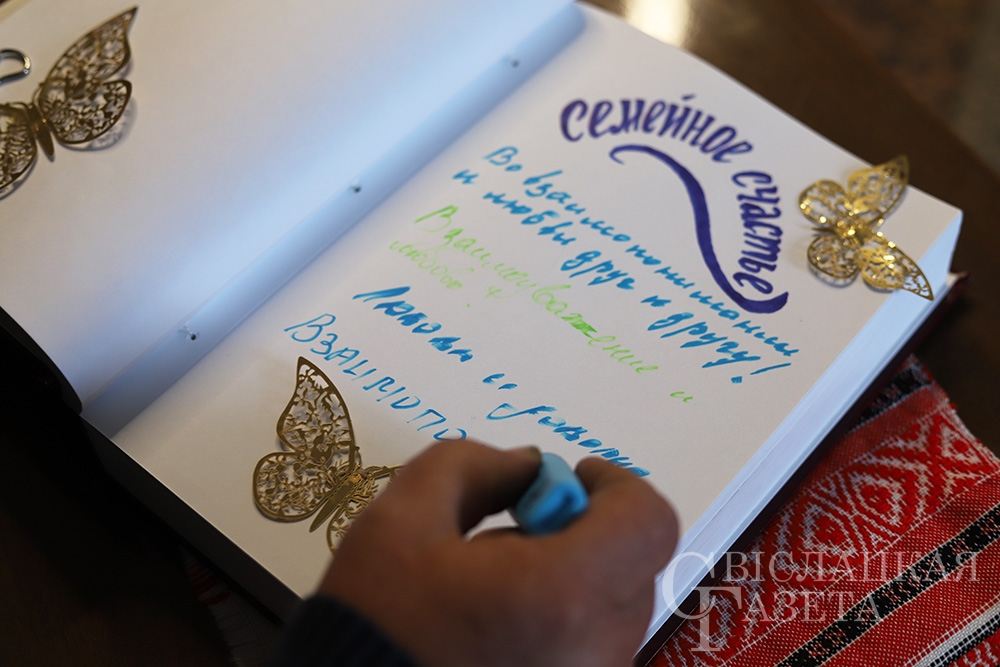 семейное счастье
Во взаимопонимании
и любви друг к другу!
Взаимоуважение и
любовь.
Любовь и доверие
ВЗАИМОПО
СВІСЛАЦКАЯ
ГАЗЕТА